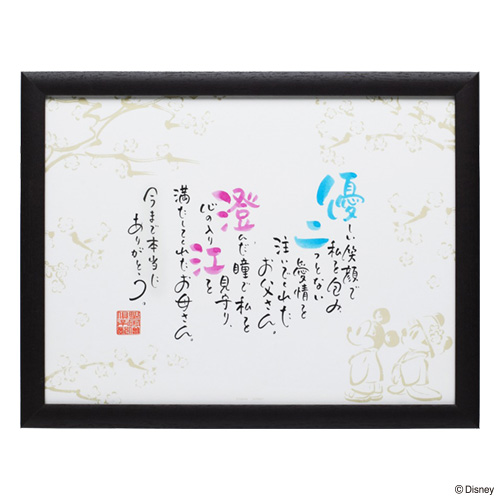 優しい笑顔で
私を包み、
二つとない
愛情を
注いでくれた
お父さん。
澄んだ瞳で私を
見守り、
江
心の入り
満たしてくれたお母さん。
今まで本当に
ありがとう。
© Disney